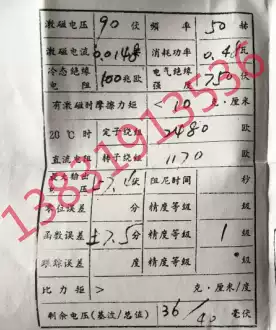 激磁电压 90 伏 频率 50 赫
激磁电流 0.0148 消耗功率 0.45 瓦
冷态绝缘电阻 100 兆欧 电气绝缘强度 750 伏
有激磁时摩擦力矩 < 10 克·厘米
20℃时 定子绕组 2480 欧
直流电阻 转子绕组 1170 欧
最大输出电压 57.1 伏 阻尼时间 秒
零位误差 分 精度等级
函数误差 ±3.5 分 精度等级 1 级
跟踪误差 度 精度等级 级
比力矩 > 克·厘米/度
剩余电压(基次/总值) 36/40 毫伏
13831913536